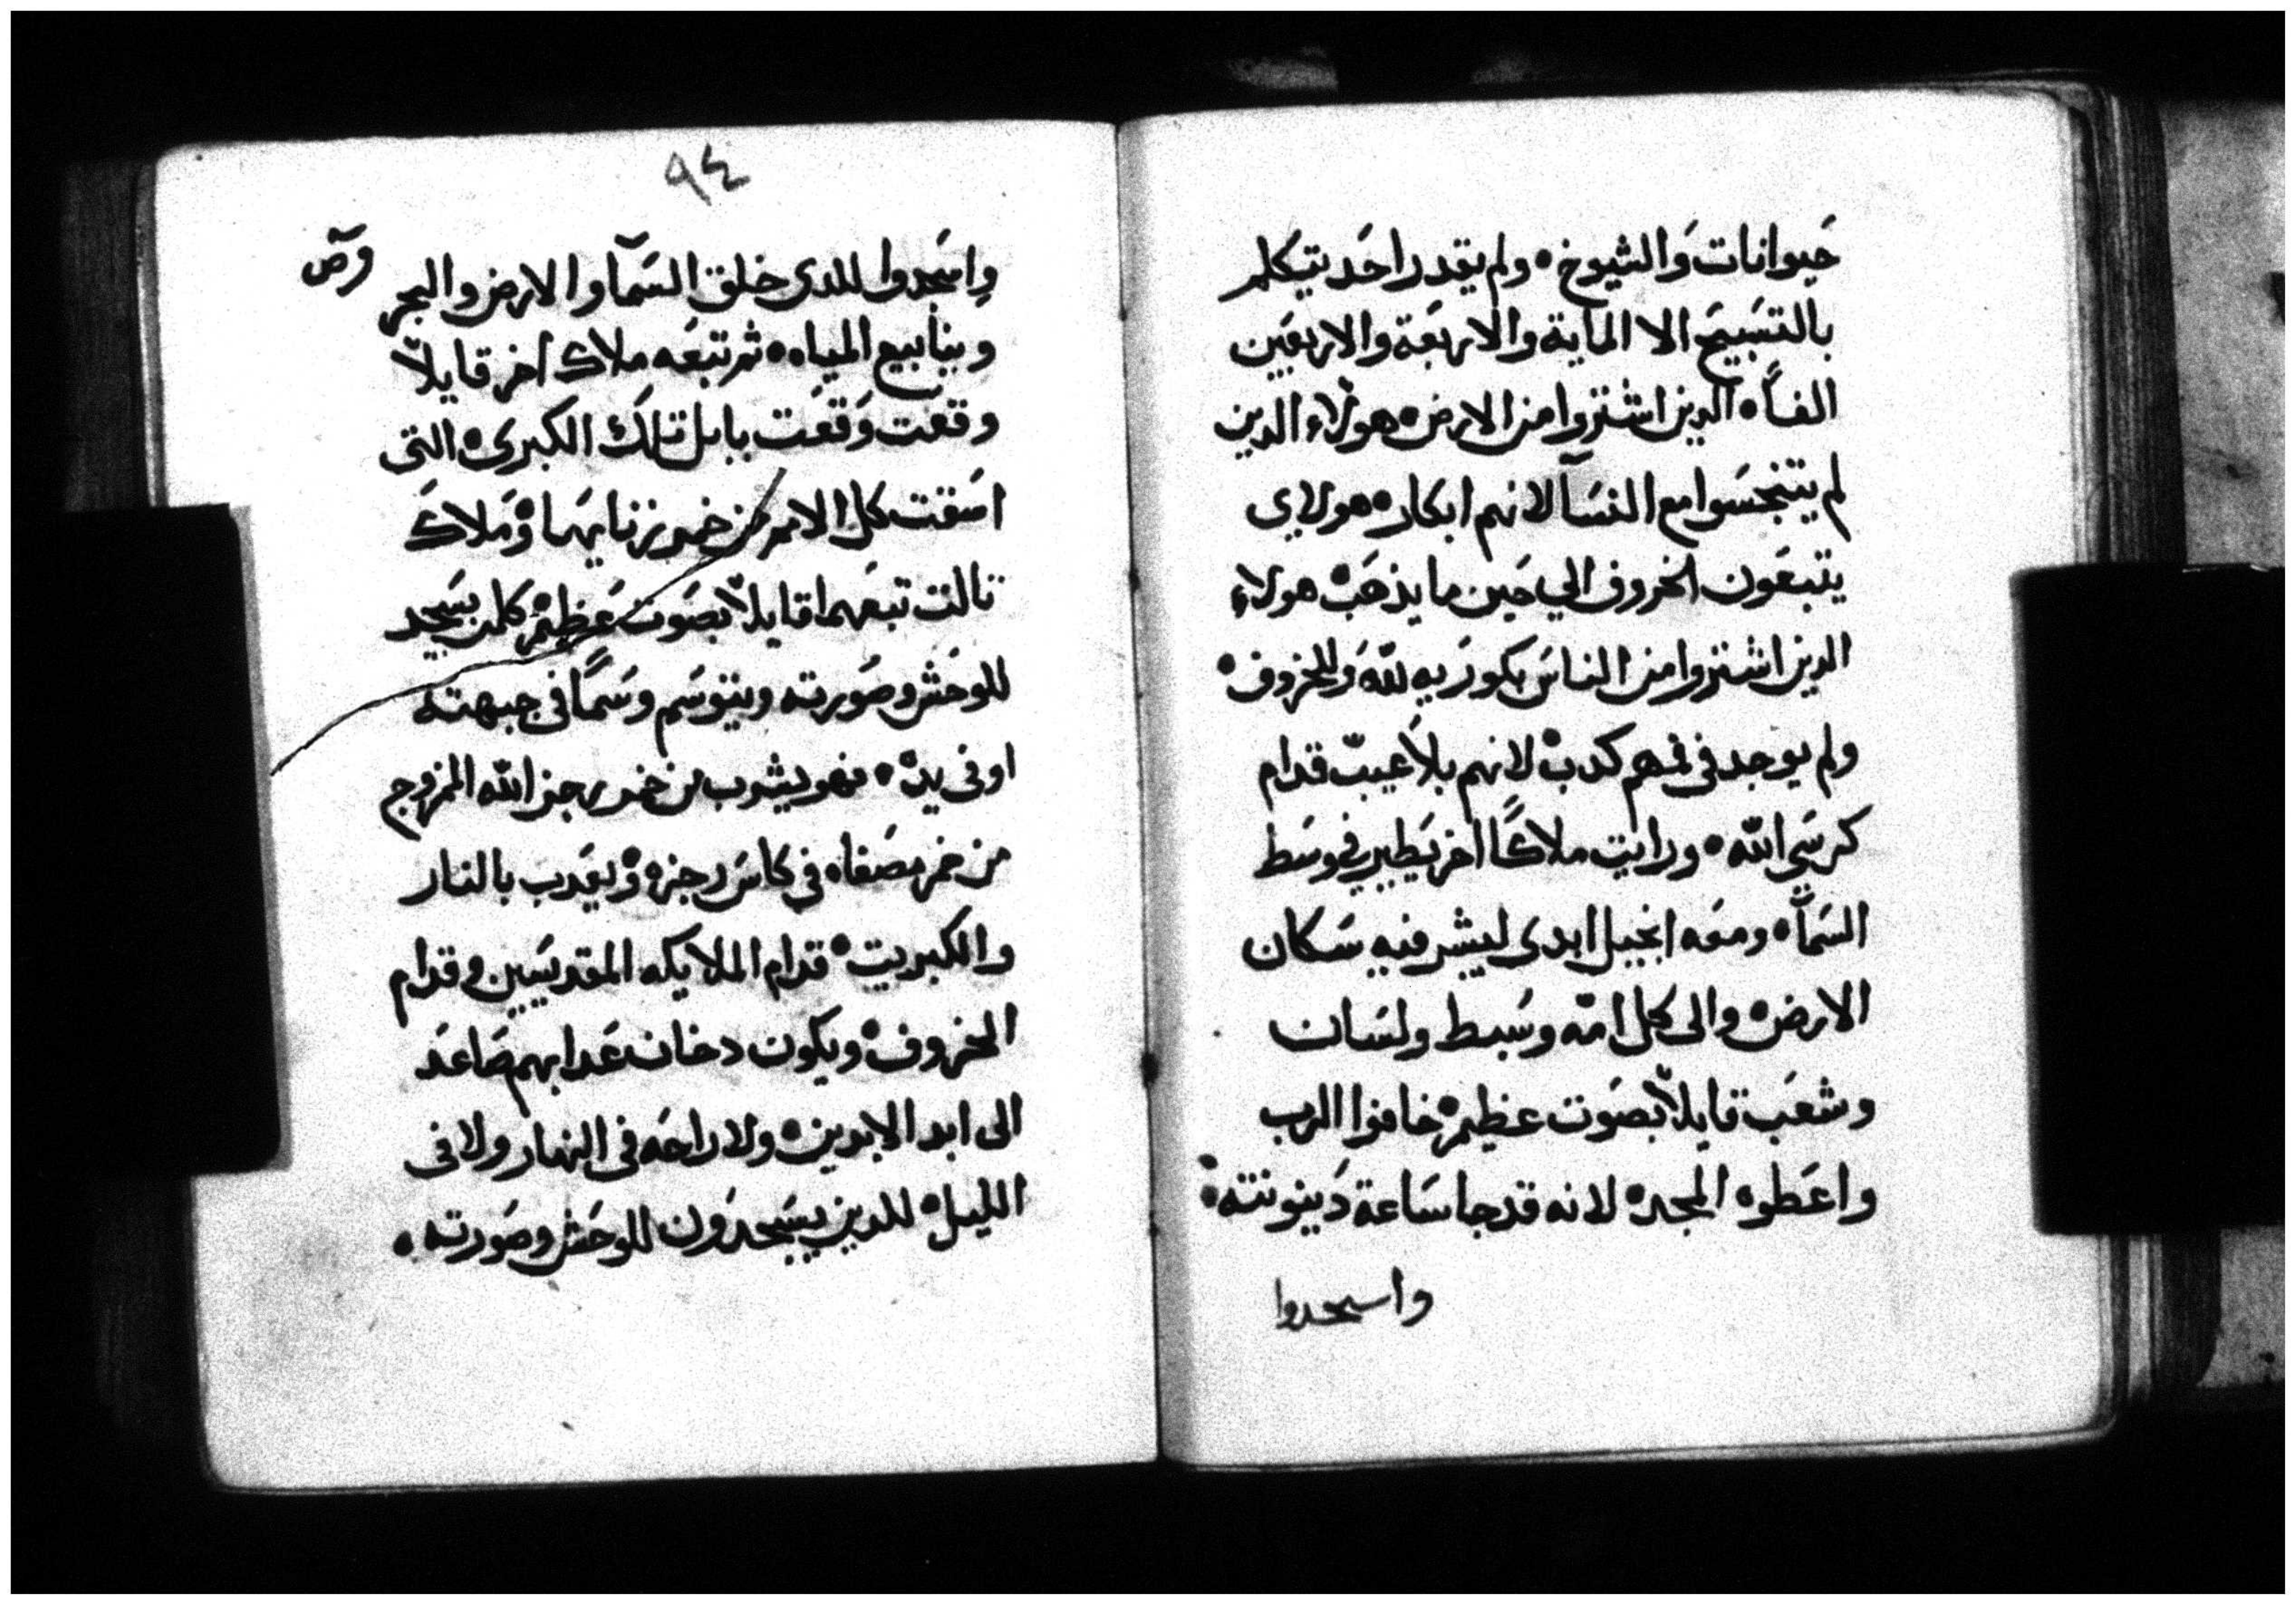 حيوانات والشيوخ • ولم يقدر احد يتكلم
بالتسبيح الا الماية والاربعة والاربعين
الفاً • الدين اشتروا من الارض • هولاء الدين
لم يتنجسوا مع النسآ لانهم ابكار • هولاى
يتبعون الخروف الي حين ما يذهب • هولاء
الدين اشتروا من الناس بكوريه لله وللخروف •
ولم يوجد في فمهم كدب • لانهم بلا عيب قدام
كرسي الله • ورايت ملاكاً اخر يطير في وسط
السمآ • ومعه انجيل ابدى ليبشر فيه سكان
الارض • والى كل امه وسبط ولسان
وشعب قايلاً بصوت عظيم • خافوا الرب
واعطوه المجد • لانه قد جا ساعة دينونته •
واسجدوا
٩٤
واسجدوا للدى خلق السمآ والارض والبحر
وينابيع المياه • ثم تبعه ملاك اخر قايلاً
وقعت وقعت بابل تلك الكبرى • التى
اسقت كل الامم من خمر زنايها • وملاك
تالت تبعهما قايلاً بصوت عظيم • كلمن يسجد
للوحش وصورته ويتوسم وسماً فى جبهته
او فى يده • فهو يشرب من خمر رجز الله المزوج
من خمر مصفاه فى كاس رجزه • ويعدب بالنار
والكبريت • قدام الملايكه المقديسين وقدام
الخروف • ويكون دخان عدابهم صاعد
الى ابد الابدين • ولا راحه فى النهار ولا فى
الليل • للدين يسجدون للوحش وصورته •